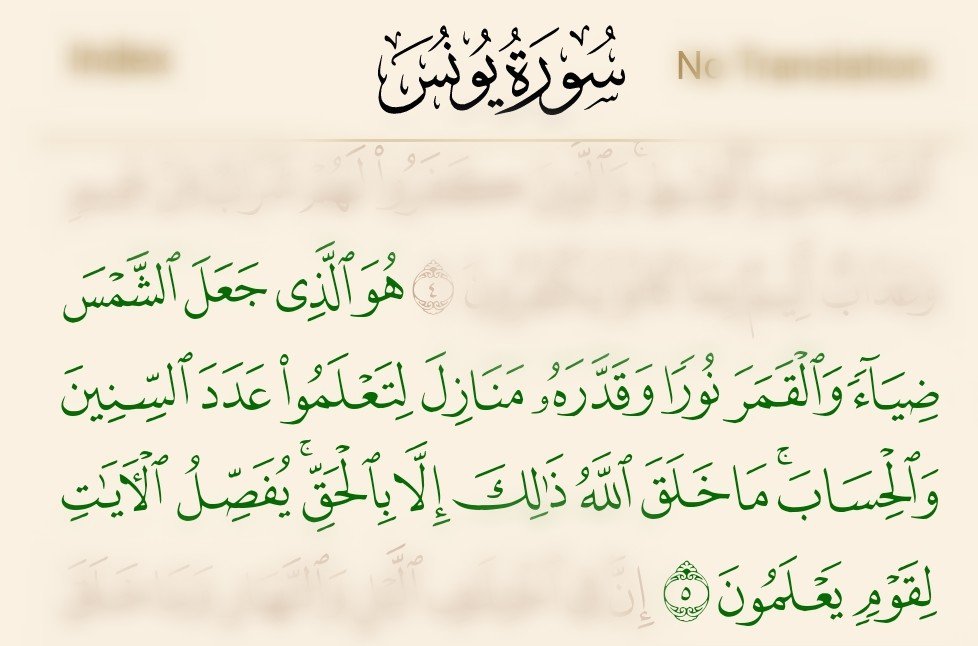 Index
سُورَةُ يُونُسَ
No Translation
٤ هُوَ ٱلَّذِى جَعَلَ ٱلشَّمْسَ
ضِيَآءً وَٱلْقَمَرَ نُورًا وَقَدَّرَهُۥ مَنَازِلَ لِتَعْلَمُوا۟ عَدَدَ ٱلسِّنِينَ
وَٱلْحِسَابَ ۚ مَا خَلَقَ ٱللَّهُ ذَٰلِكَ إِلَّا بِٱلْحَقِّ ۚ يُفَصِّلُ ٱلْـَٔايَـٰتِ
لِقَوْمٍ يَعْلَمُونَ ٥ إِنَّ